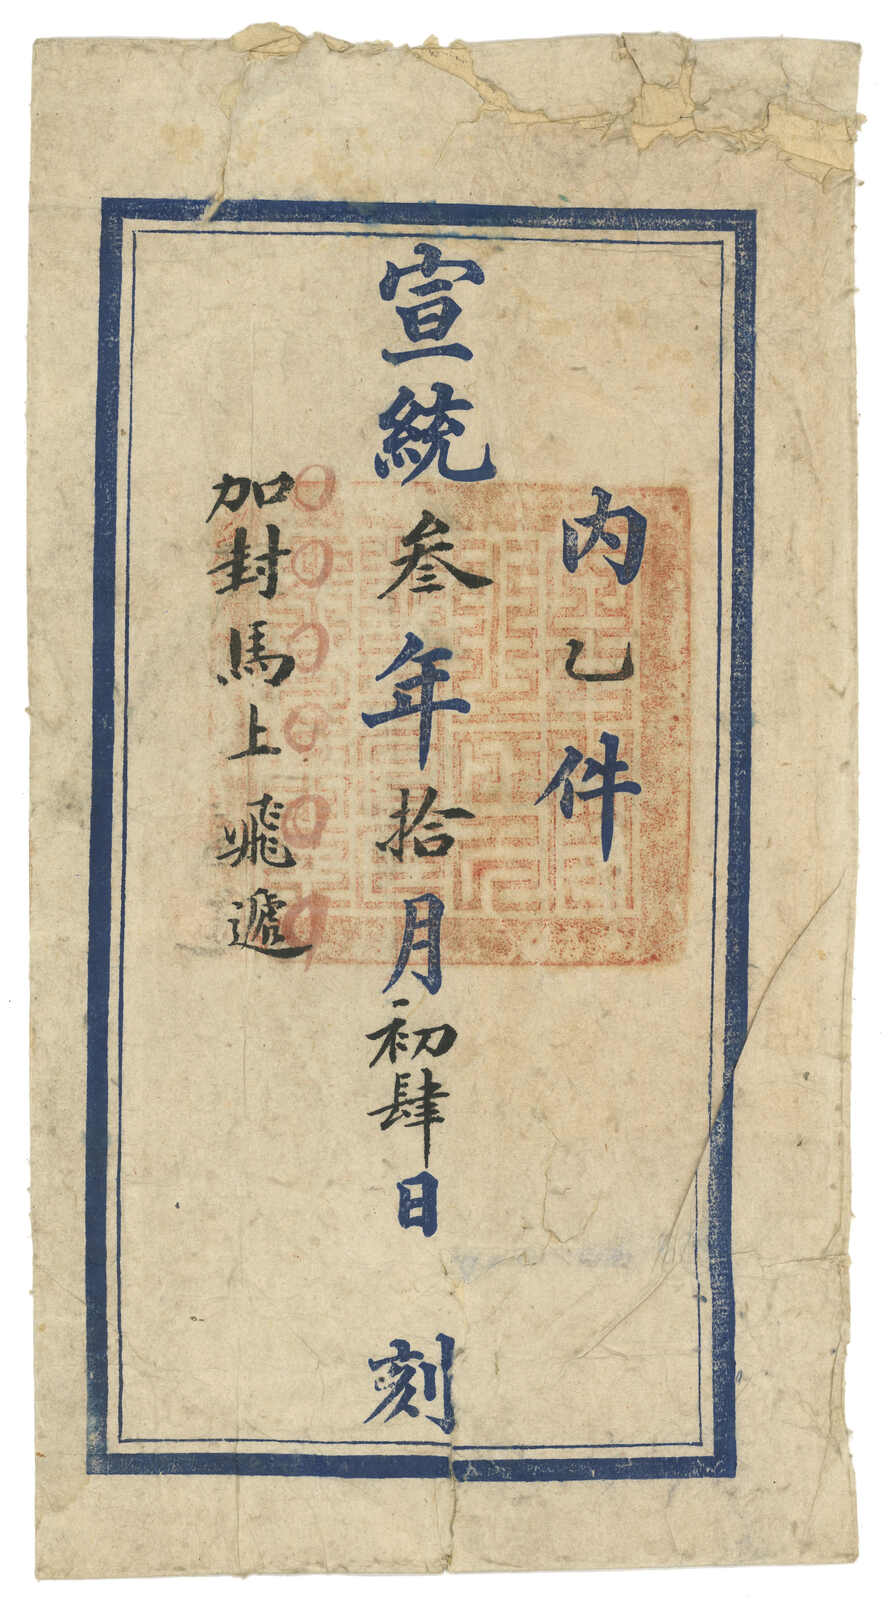 内乙件
宣統叁年拾月初肆日 刻
加封馬上飛遞